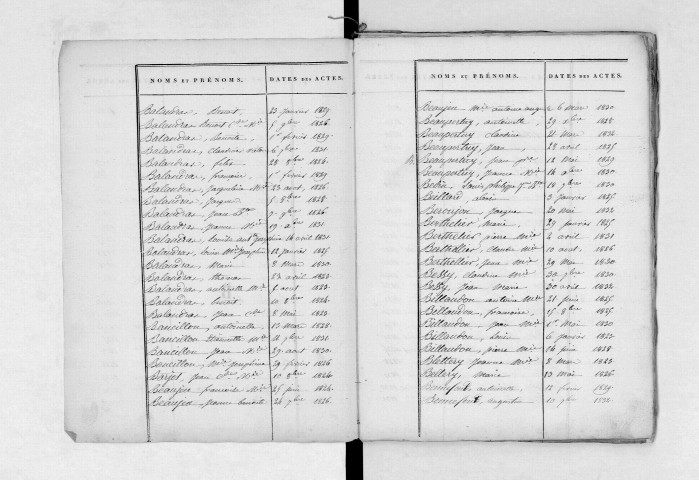 NOMS ET PRÉNOMS. DATES DES ACTES.
Balandras, Benoit, 23 janvier 1829.
Balandras Benoit Mie 9bre 1826.
Balandras, Benoite, 1er fevrier 1829.
Balandras, Claudine 6 9bre 1831
Balandras, 28 8bre 1824.
Balandras, françoise, 1er fevrier 1829
Balandras, Jacqueline Mie 23 aout 1826
Balandras, Jacques 5 8bre 1828.
Balandras, Jean 9bre 1826
Balandras, Jeanne Mie 19 1831
Balandras, Josephine 14 avril 1830
Balandras, Josephine 12 janvier 1825
Balandras, Marie 8 Mai 1830
Balandras, 23 avril 1822.
Balandras, antoinette Mie 8 aout 1823.
Balandras, benoit 10 8bre 1824.
Balandras, Jean 8 Mai 1823
Bancillon, antoinette 13 mars 1828.
Bancillon Mie 11 9bre 1822
Bancillon Jean Mie 29 aout 1830.
Bancillon, Josephine 29 fevrier 1826
Barjot, Jean Mie 10 8bre 1824
Beaujeu françoise Mie 25 juin 1824.
Beaujeu, Jeanne benoite 26 9bre 1826.
NOMS ET PRÉNOMS. DATES DES ACTES.
Beaujeu Mie antoine 6 Mars 1830
Beaupertuy, antoinette, 29 8bre 1828
Beaupertuy Claudine 21 Mai 1824
Beaupertuy, Jean 28 avril 1825
Beaupertuy, Jean 12 Mai 1829
Beaupertuy, Jeanne Mie 14 1830
Bedin, Louis philippe 18 9bre 1830
3 janvier 1825.
Beroujon Jacques 20 Mai 1822
Berthelier Marie, 29 janvier 1825
Berthelier pierre Mie 2 avril 1831
Berthellier Claude Mie 10 aout 1826
Berthellier, Jean Mie 29 Mai 1830
Bessy, Claudine Mie 30 9bre 1830
Bessy, Jean 30 avril 1824
Billaudon, antoine Mie 21 juin 1825
Billaudon, françoise, 15 8bre 1825
Billaudon, Jean Mie 1er Mai 1830
Billaudon, Louis 6 janvier 1822
Billaudon, pierre Mie 26 juin 1828
Blettery Jeanne Mie 8 mars 1823
Blettery, Marie 13 Mai 1826
Bonnefont, antoinette, 12 fevrier 1829.
Bonnefont, augustin 10 9bre 1822